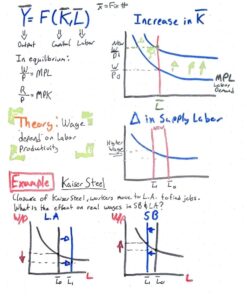 x̄ = Fix #
Ȳ = F(K̄,L̄)
Output Capital Labor
In equilibrium:
W/P = MPL
R/P = MPK
Increase in K̄
New
W/P
W/P0
MPL
Labor Demand
L̄
Theory: Wage
demand on Labor
Productivity
Δ in Supply Labor
Higher
Wage
L1 L0
Example Kaiser Steel
Closure of Kaiser Steel, workers move to L.A. to find jobs.
What is the effect on real wages in SB & LA?
W/P L.A
L0 L1 L
W/P SB
L1 L0 L